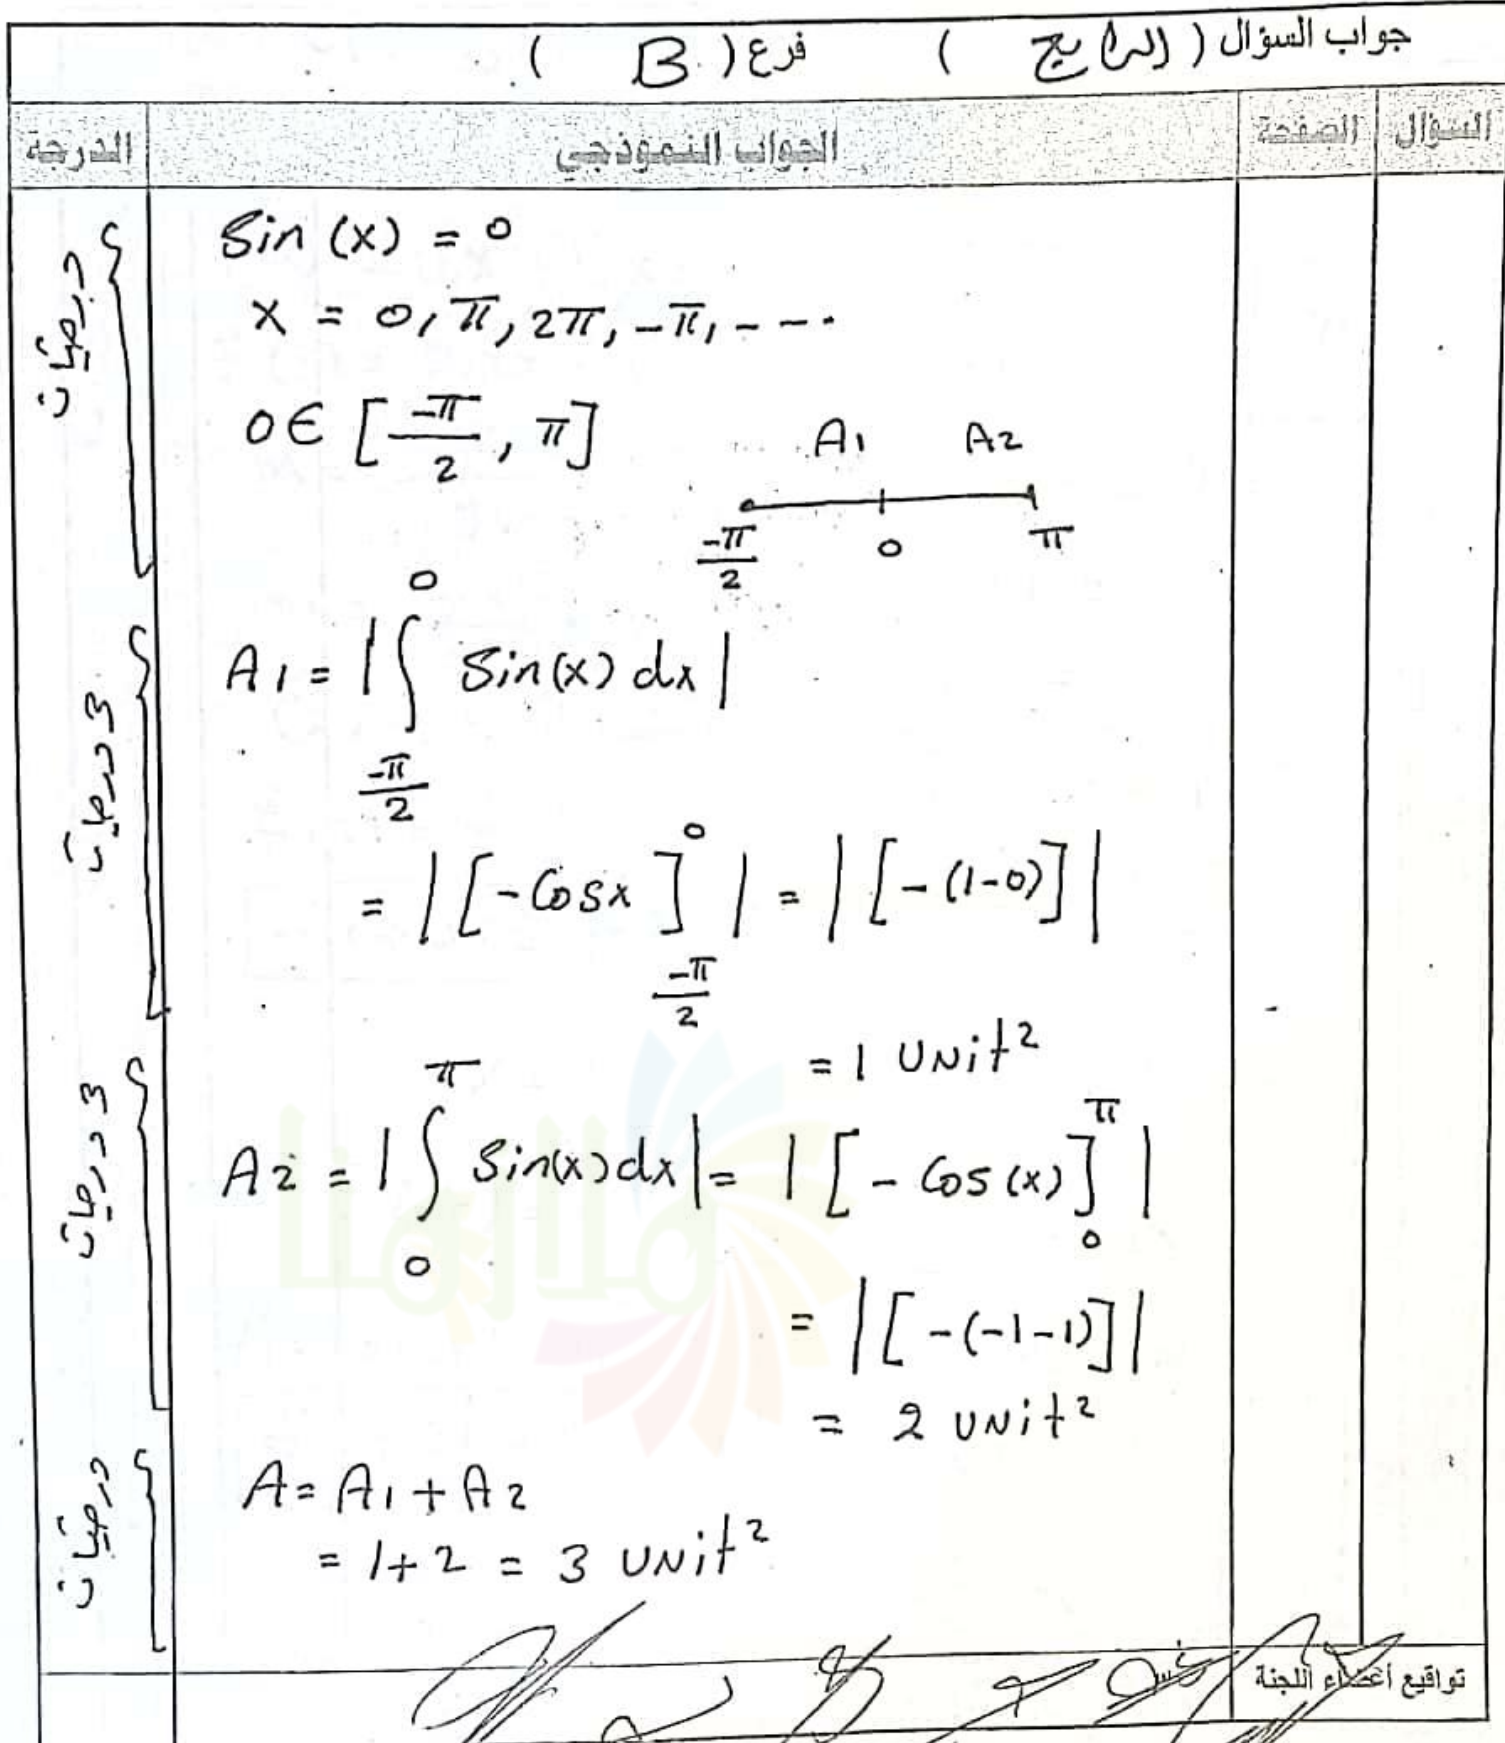 جواب السؤال ( الرابع ) فرع ( B )
السؤال الصفحة الجواب النموذجي الدرجة
Sin (x) = 0
x = 0, π, 2π, -π, - - -
0 ∈ [-π/2, π]
A1 A2
-π/2 0 π
درجتان
A1 = |∫_{-π/2}^{0} Sin(x) dx|
= |[-Cosx]_{-π/2}^{0}| = |[-(1-0)]|
= 1 UNit²
3 درجات
A2 = |∫_{0}^{π} Sin(x) dx| = |[-Cos(x)]_{0}^{π}|
= |[-(-1-1)]|
= 2 UNit²
3 درجات
A = A1 + A2
= 1+2 = 3 UNit²
درجتان
تواقيع اعضاء اللجنة
ملازمنا